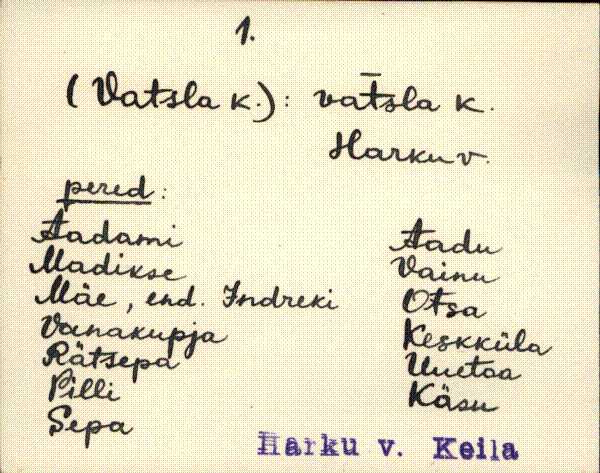 1.
(Vatsla k.): vat̄sla k.
Harku v.
pered:
Aadami
Madikse
Mäe, end. Indreki
Vanakupja
Rätsepa
Pilli
Sepa
Aadu
Vainu
Otsa
Keskküla
Uuetoa
Käsu
Harku v. Keila